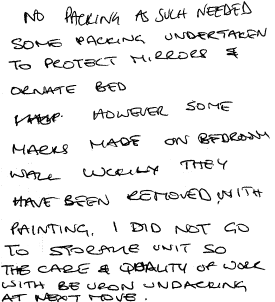 NO PACKING AS SUCH NEEDED
SOME PACKING UNDERTAKEN
TO PROTECT MIRRORS &
ORNATE BED
HOWEVER SOME
MARKS MADE ON BEDROOM
WALL LUCKILY THEY
HAVE BEEN REMOVED WITH
PAINTING. I DID NOT GO
TO STORAGE UNIT SO
THE CARE & QUALITY OF WORK
WITH BE UPON UNPACKING
AT NEXT MOVE.